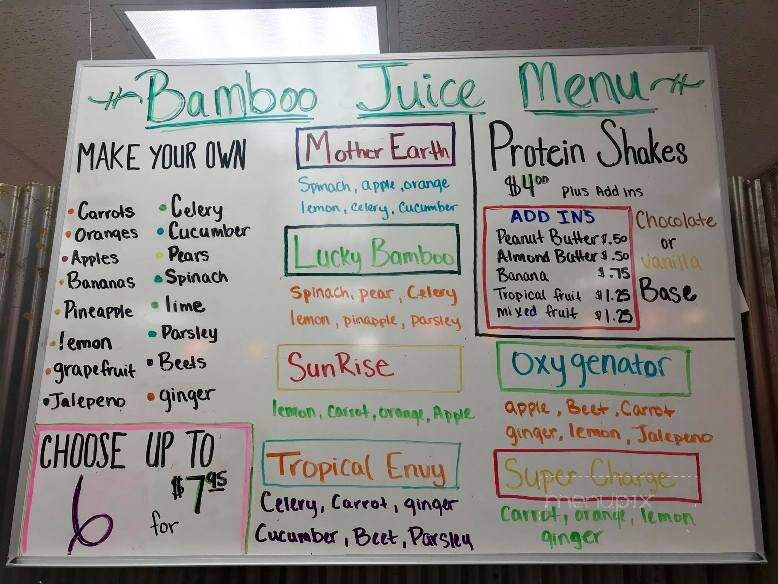 Bamboo Juice Menu
MAKE YOUR OWN
Carrots
Oranges
Apples
Bananas
Pineapple
lemon
grapefruit
Jalepeno
Celery
Cucumber
Pears
Spinach
lime
Parsley
Beets
ginger
CHOOSE UP TO
6 for $7.95
Mother Earth
Spinach, apple, orange
lemon, celery, cucumber
Lucky Bamboo
Spinach, pear, Celery
lemon, pinapple, parsley
SunRise
lemon, carrot, orange, Apple
Tropical Envy
Celery, Carrot, ginger
Cucumber, Beet, Parsley
Protein Shakes
$4.00 Plus Add ins
ADD INS
Peanut Butter $.50
Almond Butter $.50
Banana $.75
Tropical fruit $1.25
mixed fruit $1.25
Chocolate
or
Vanilla
Base
Oxygenator
apple, Beet, Carrot
ginger, lemon, Jalepeno
Super Charge
Carrot, orange, lemon
ginger
menupix